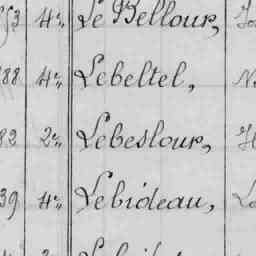 53 4 Le Bellour,
88 4 Lebeltel,
82 2 Lebeslour,
39 4 Lebideau,